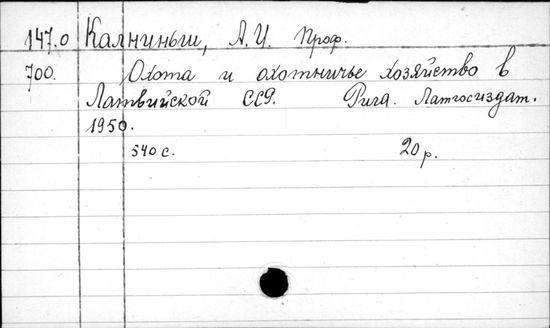 147.0 Калниньш, А.И. Проф.
700. Охота и охотничье хозяйство в
Латвийской ССР. Рига. Латгосиздат.
1950.
540 с. 20 р.